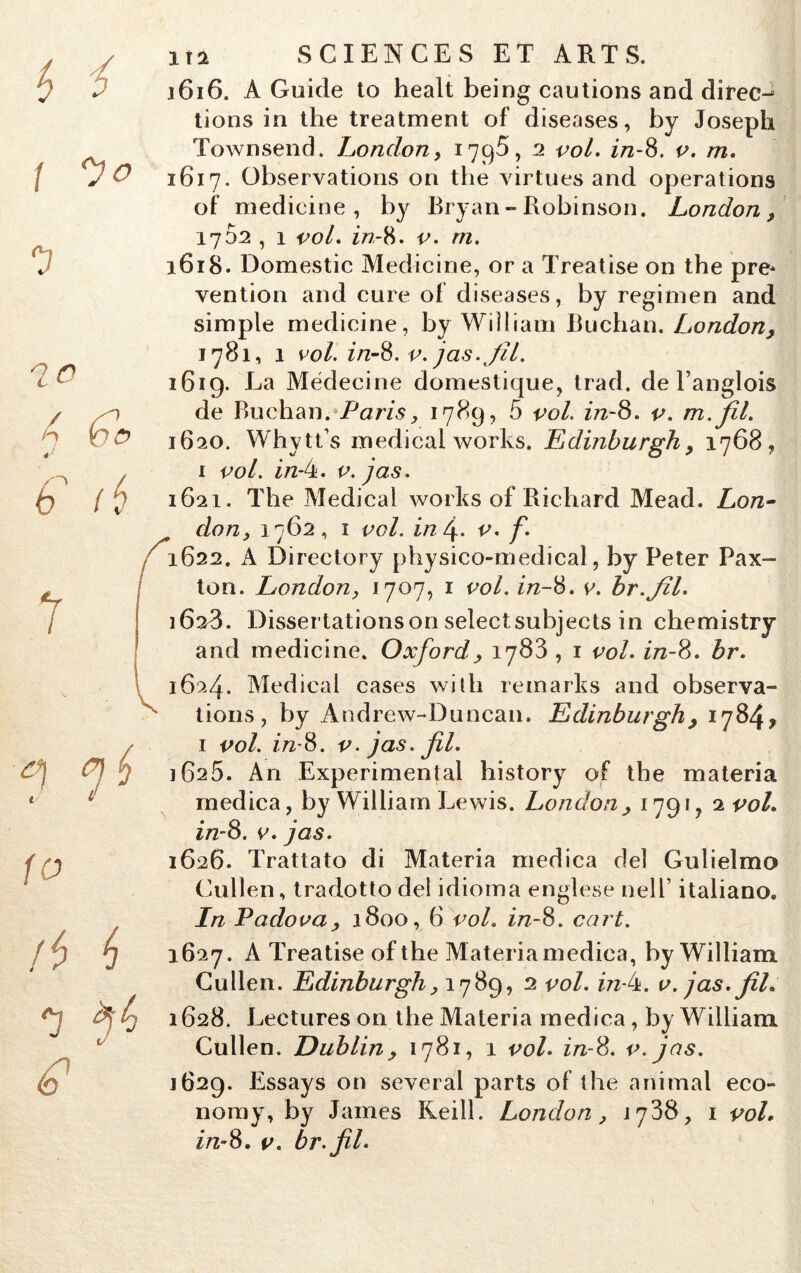 112 SCIENCES ET ARTS.
1616. A Guide to healt being cautions and direc-
tions in the treatment of diseases, by Joseph
Townsend. London, 1795, 2 vol. in-8. v. m.
1617. Observations on the virtues and operations
of medicine, by Bryan-Robinson. London,
1752, 1 vol. in-8. v. m.
1618. Domestic Medicine, or a Treatise on the pre-
vention and cure of diseases, by regimen and
simple medicine, by William Buchan. London,
1781, 1 vol. in-8. v. jas. fil.
1619. La Médecine domestique, trad. de l'anglois
de Buchan. Paris, 1789, 5 vol. in-8. v. m. fil.
1620. Whytt's medical works. Edinburgh, 1768,
1 vol. in-4. v. jas.
1621. The Medical works of Richard Mead. Lon-
don, 1762, 1 vol. in 4. v. f.
1622. A Directory physico-medical, by Peter Pax-
ton. London, 1707, 1 vol. in-8. v. br. fil.
1623. Dissertations on select subjects in chemistry
and medicine. Oxford, 1783, 1 vol. in-8. br.
1624. Medical cases with remarks and observa-
tions, by Andrew-Duncan. Edinburgh, 1784,
1 vol. in-8. v. jas. fil.
1625. An Experimental history of the materia
medica, by William Lewis. London, 1791, 2 vol.
in-8. v. jas.
1626. Trattato di Materia medica del Gulielmo
Cullen, tradotto del idioma englese nell' italiano.
In Padova, 1800, 6 vol. in-8. cart.
1627. A Treatise of the Materia medica, by William
Cullen. Edinburgh, 1789, 2 vol. in-4. v. jas. fil.
1628. Lectures on the Materia medica, by William
Cullen. Dublin, 1781, 1 vol. in-8. v. jas.
1629. Essays on several parts of the animal eco-
nomy, by James Keill. London, 1738, 1 vol.
in-8. v. br. fil.
6 15
7
10
15 5
6